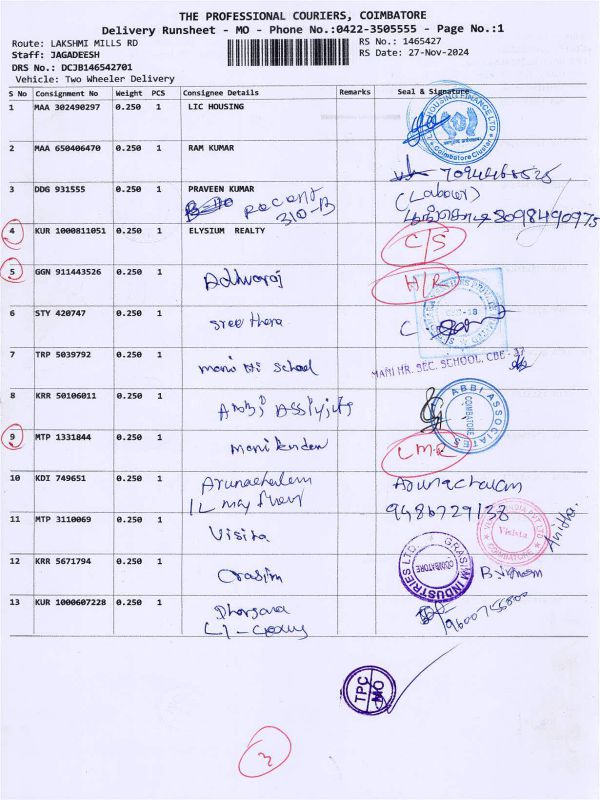 THE PROFESSIONAL COURIERS, COIMBATORE
Delivery Runsheet - MO - Phone No.:0422-3505555 - Page No.:1
Route: LAKSHMI MILLS RD RS No.: 1465427
Staff: JAGADEESH RS Date: 27-Nov-2024
DRS No.: DCJB146542701
Vehicle: Two Wheeler Delivery
S No Consignment No Weight PCS Consignee Details Remarks Seal & Signature
1 MAA 302490297 0.250 1 LIC HOUSING
LIC HOUSING FINANCE LTD
Coimbatore Cluster
2 MAA 650406470 0.250 1 RAM KUMAR
7094468525
3 DDG 931555 0.250 1 PRAVEEN KUMAR (Labour)
310-B 8098490975
4 KUR 1000811051 0.250 1 ELYSIUM REALTY C/S
5 GGN 911443526 0.250 1 H/R
Adhvaraj
6 STY 420747 0.250 1
Sree thera
7 TRP 5039792 0.250 1
Mani Hr School MANI HR. SEC. SCHOOL, CBE - 37
8 KRR 50106011 0.250 1
ABBI ASSOCIATES
COIMBATORE
9 MTP 1331844 0.250 1
Manikandan
10 KDI 749651 0.250 1 Arunachalam Arunachalam
9486729138
11 MTP 3110069 0.250 1
Visista Visista Anitha
COIMBATORE
12 KRR 5671794 0.250 1
Grasim GRASIM INDUSTRIES LTD.
COIMBATORE
13 KUR 1000607228 0.250 1
9600755800
TPC
MO
3